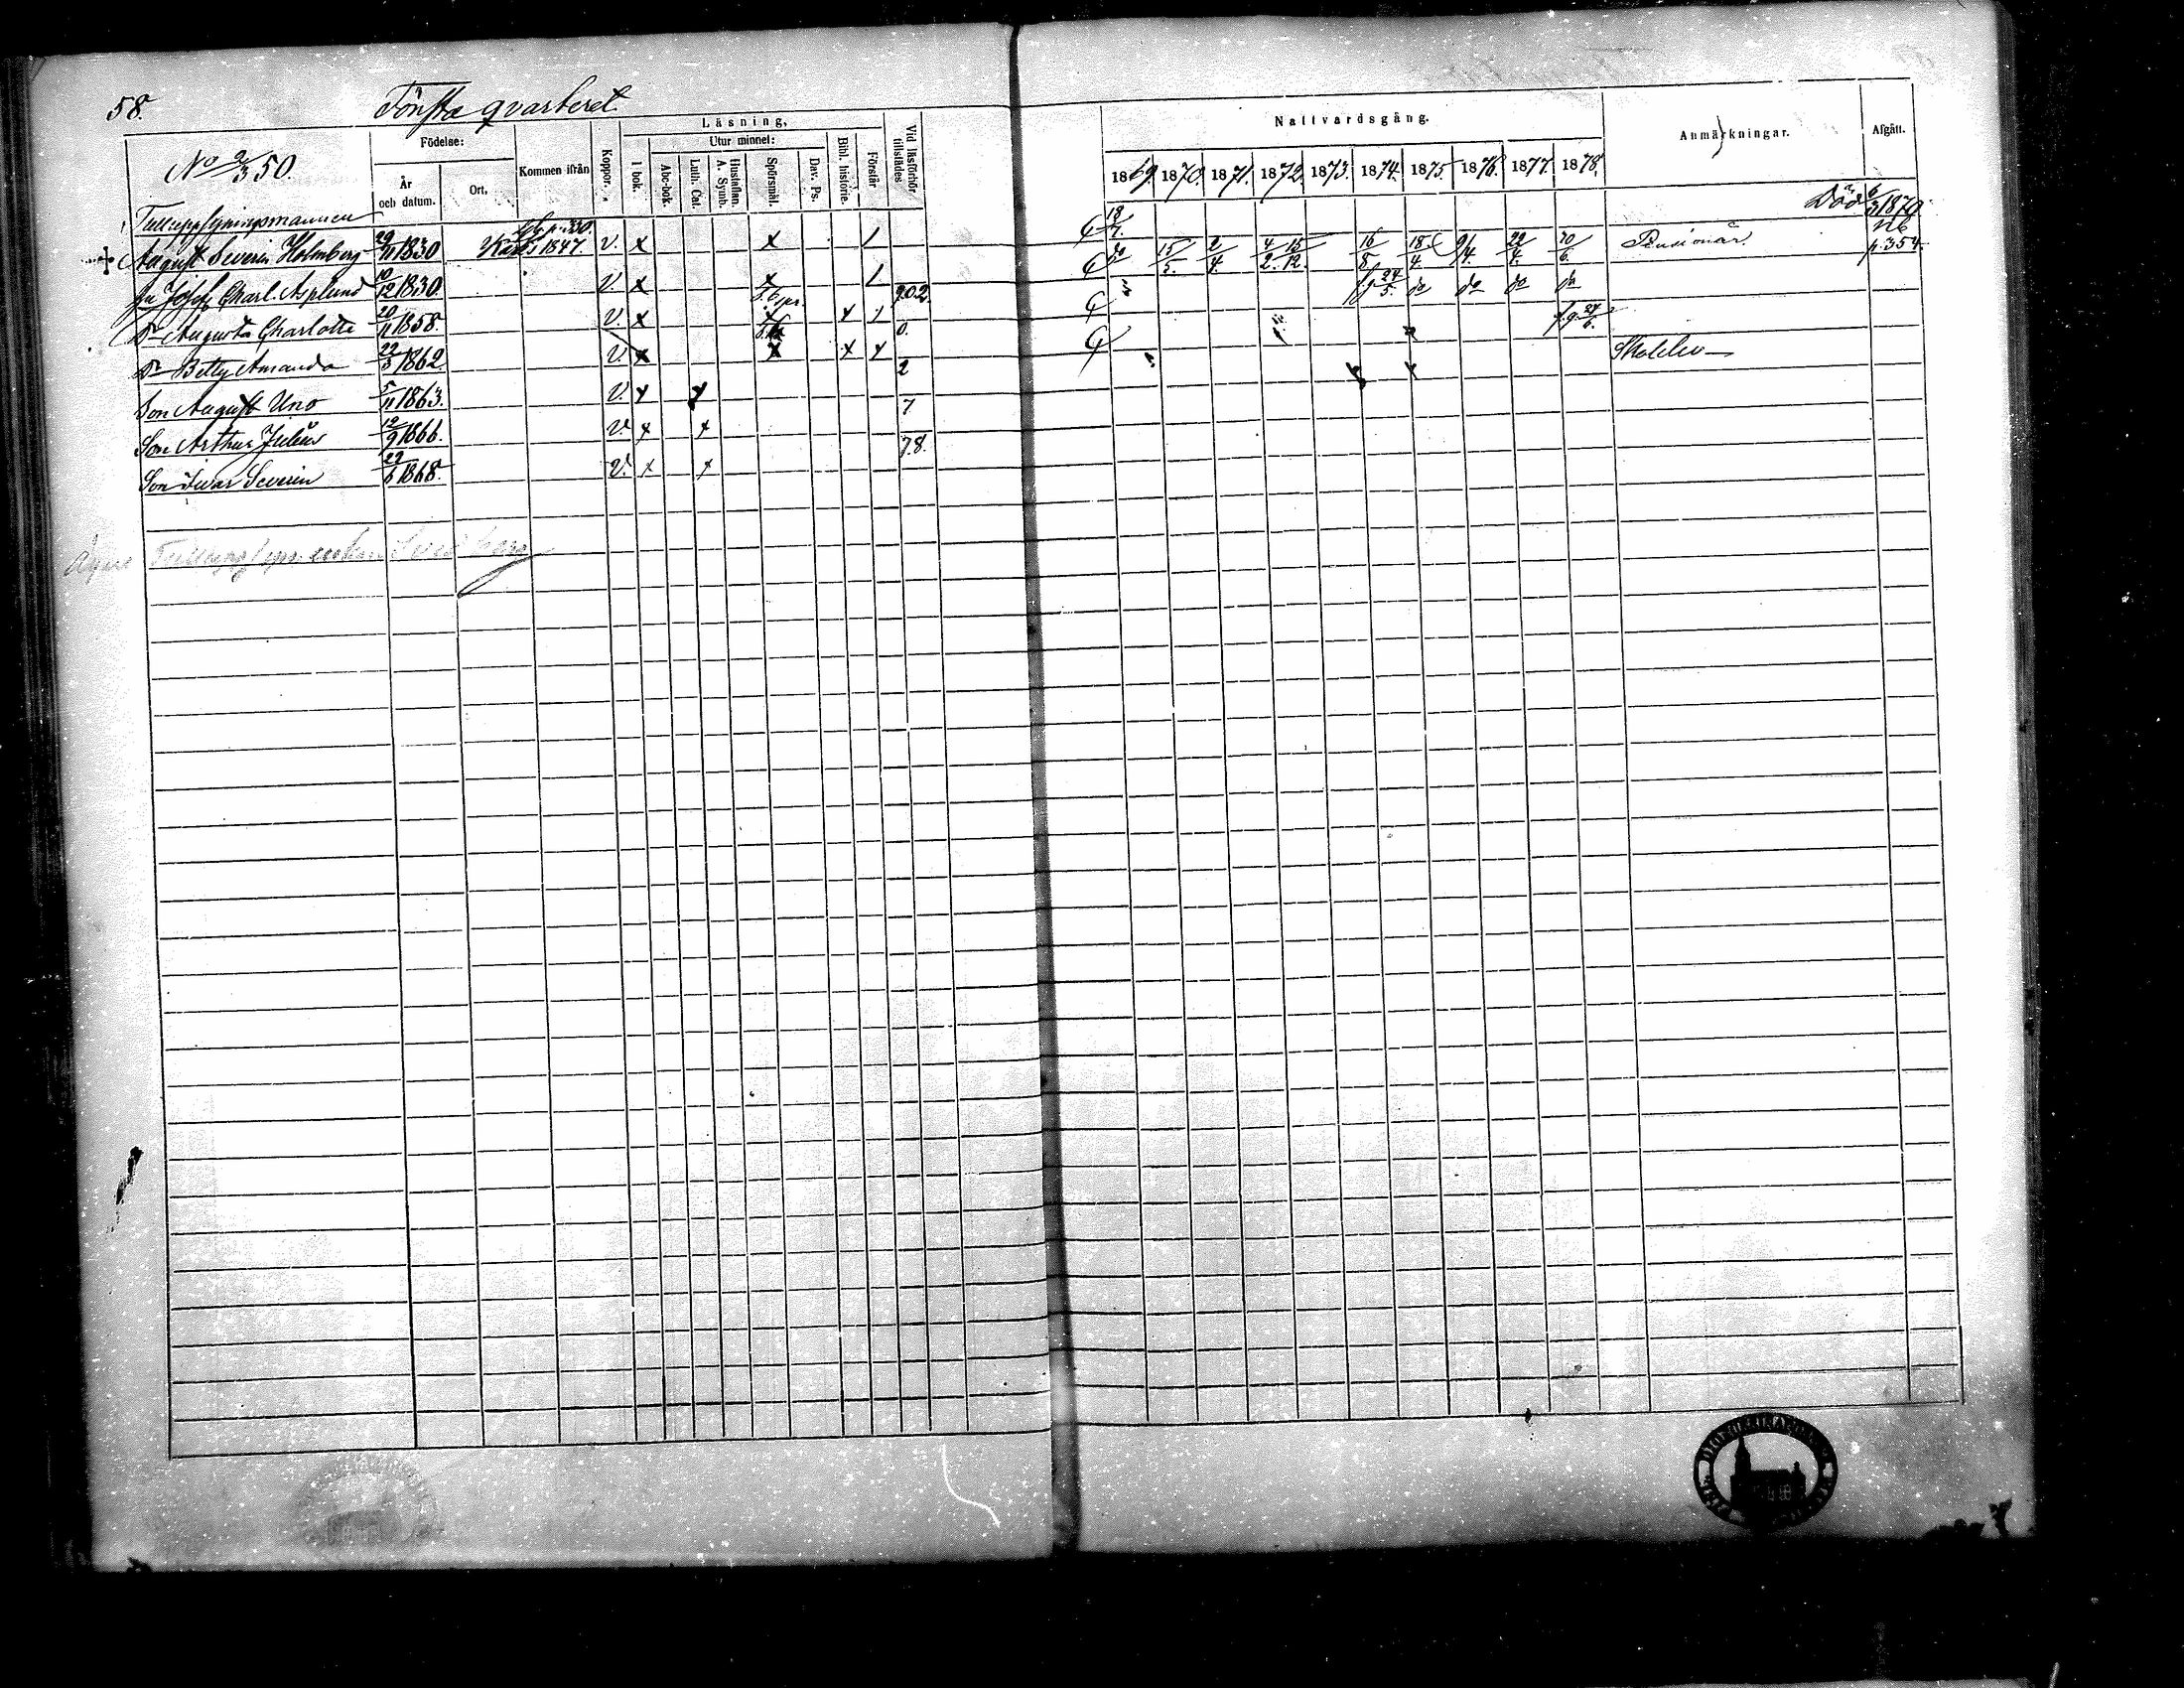 58.
Första qvarteret
No 2/3 50.
Födelse:
År och datum.
Ort,
Kommen ifrån
Koppor.
Läsning,
I bok.
Utur minnet:
Abc-bok.
Luth. Cat.
Hustaflan. A. Symb.
Spörsmål.
Dav. Ps.
Bibl. historie.
Förstår
Vid läsförhör. tillstädes
Nattvardsgång.
1869. 1870. 1871. 1872. 1873. 1874. 1875. 1876. 1877. 1878.
Anmärkningar.
Afgått.
Tulluppsyningsmannen
18/7. Död 6/3 1870
August Severin Holmberg 29/11 1830 1847. V. x x / do 15/5. 2/4. 4/2. 15/12. 16/8. 18/4. 9/4. 22/4. 20/6. Pensionär N6 p. 354
Josef. Charl. Asplund 10/12 1830. V. x x / 24/5. do do do do
Dr Augusta Charlotte 20/11 1858. V. x x / 7.0.2. 24/6.
Dr Betty Amanda 22/3 1862. V. x x x x 0. Skolelev
Son August Uno 5/11 1863. V. x x 2
Son Arthur Julius 12/9 1866. V. x x 7
Son Ivar Severin 22/6 1868. V. x x 7.8.